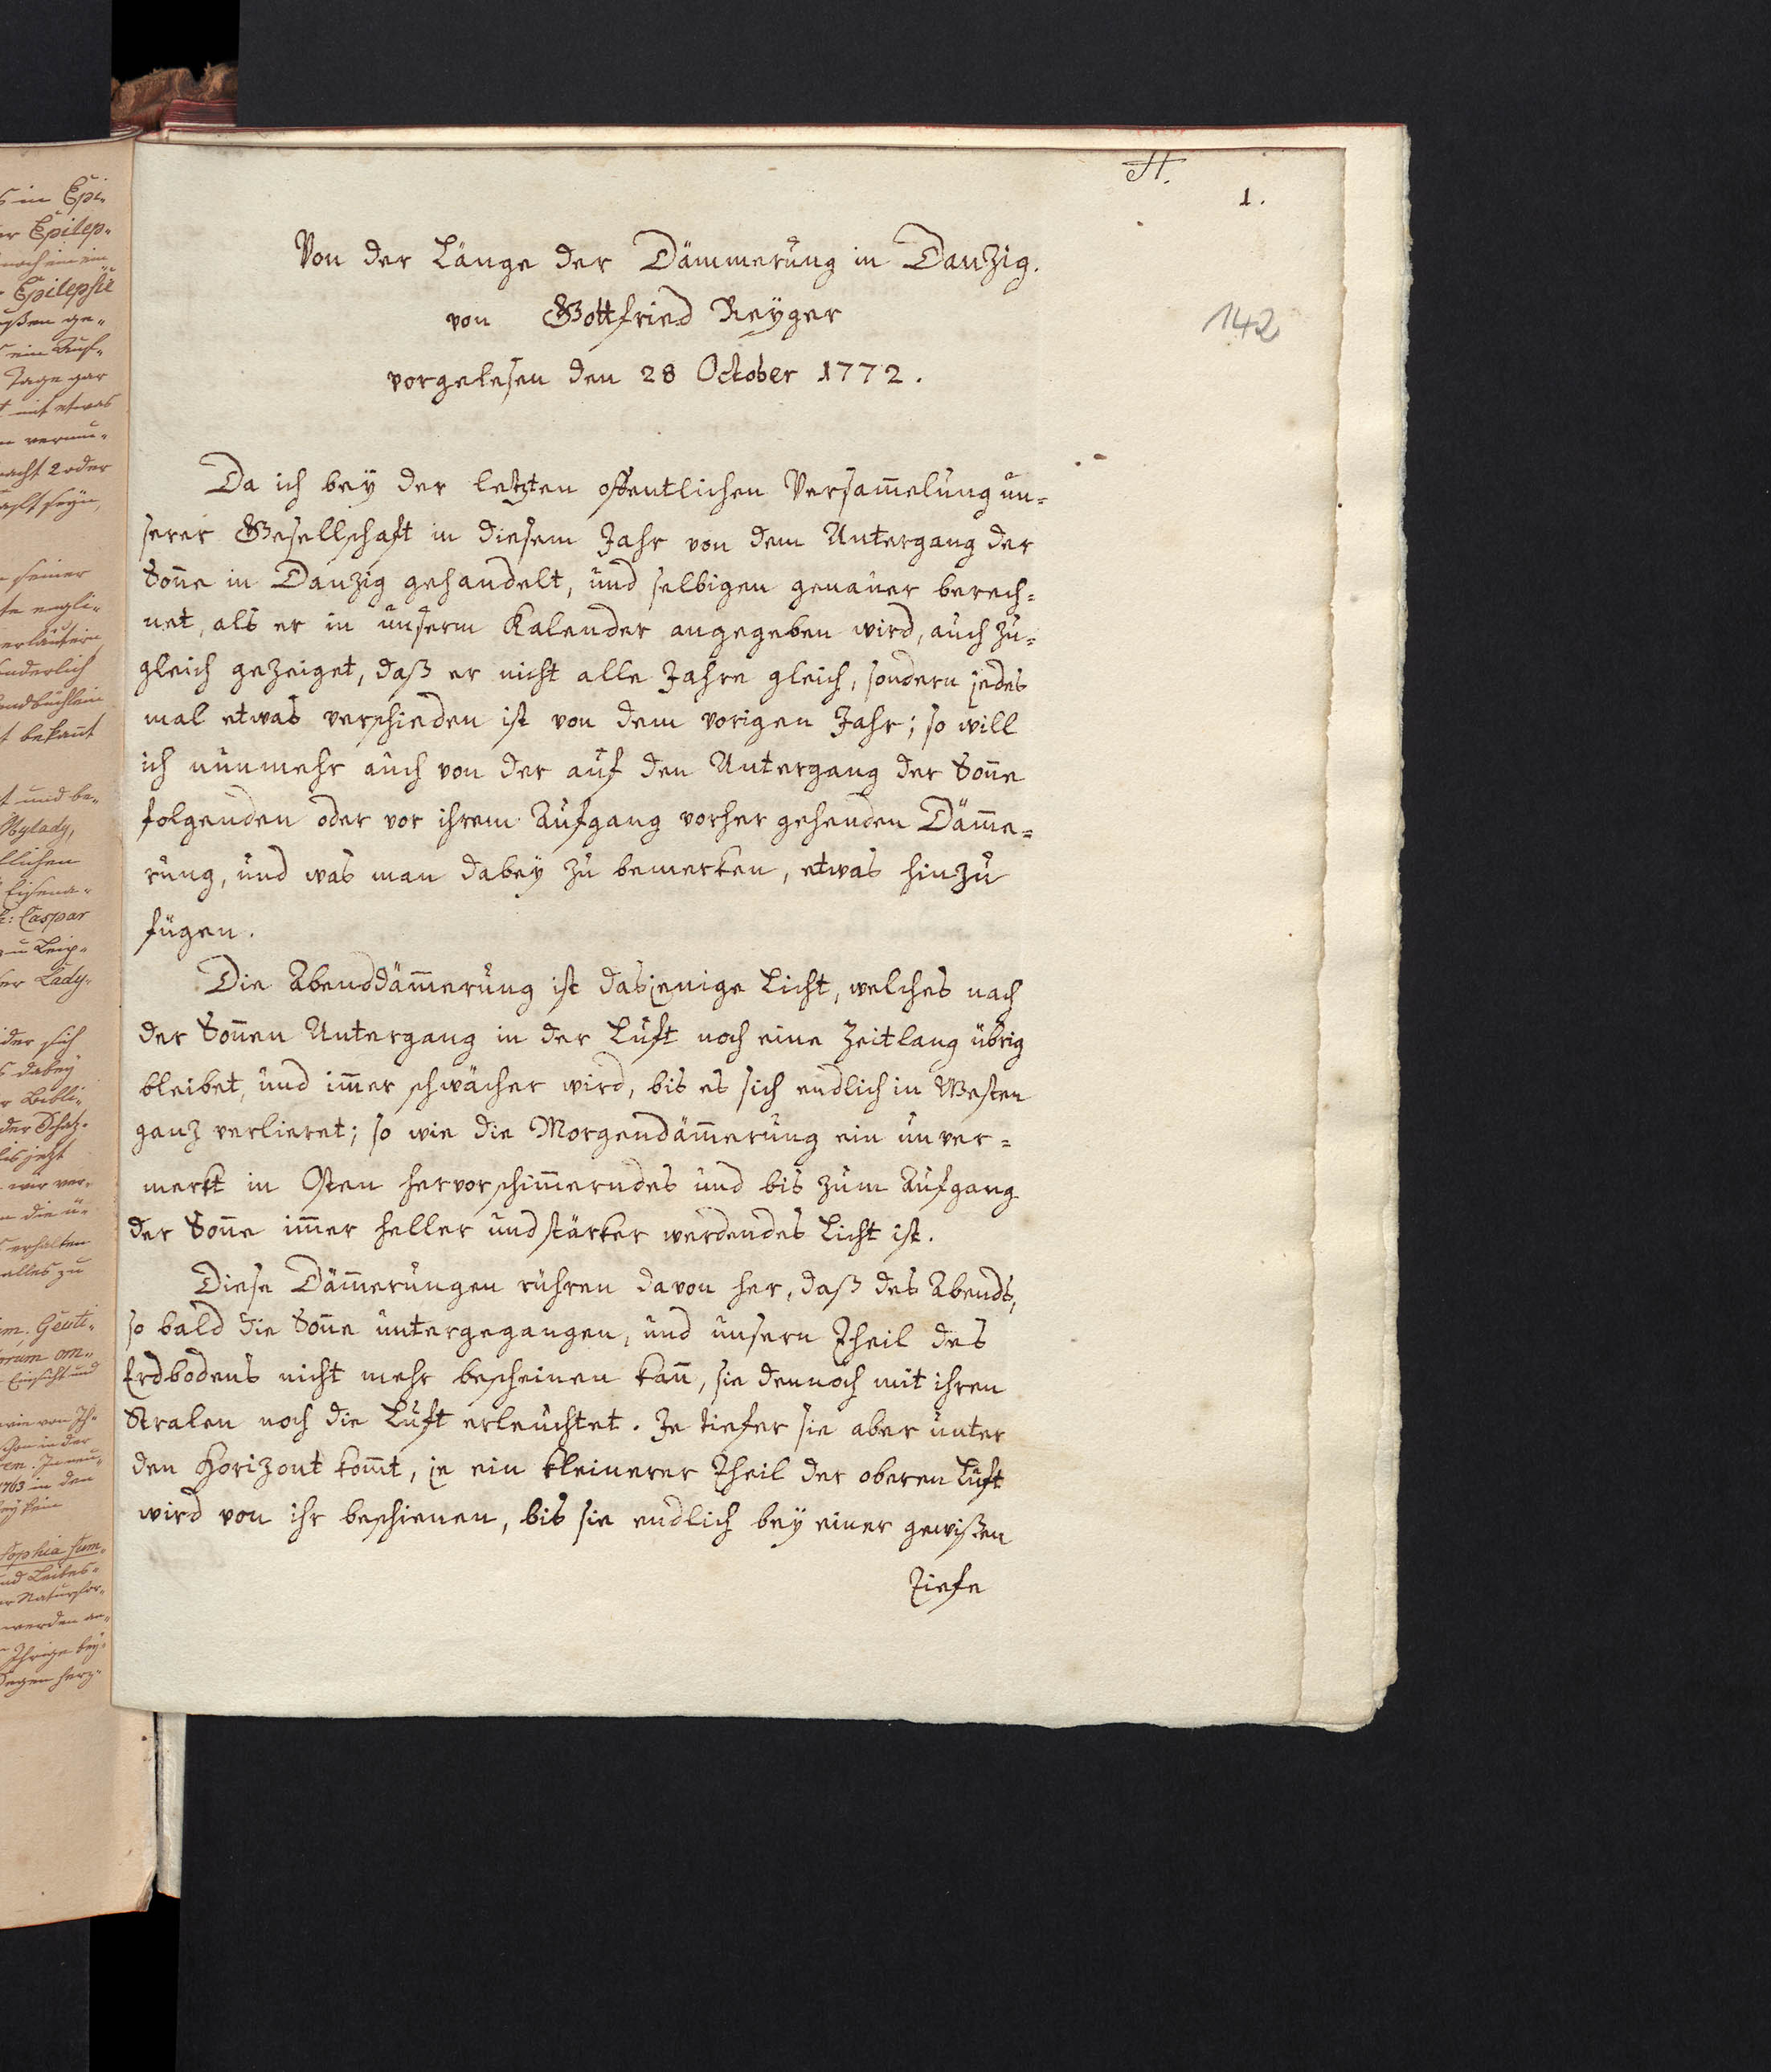 H.
1.
Von der Länge der Dämmerung in Danzig.
von Gottfried Reÿger
142
vorgelesen den 28 October 1772.
Da ich beÿ der letzten öffentlichen Versam̅elung un=
serer Gesellschaft in diesem Jahr von dem Untergang der
Son̅e in Danzig gehandelt, und selbigen genauer berech=
net, als er in unserm Kalender angegeben wird, auch zu=
gleich gezeiget, daß er nicht alle Jahre gleich, sondern jedes
mal etwas verschieden ist von dem vorigen Jahr; so will
ich nunmehr auch von der auf den Untergang der Son̅e
folgenden oder vor ihrem Aufgang vorher gehenden Däm̅e=
rung, und was man dabeÿ zu bemerken, etwas hinzu
fügen.
Die Abenddäm̅erung ist dasjenige Licht, welches nach
der Son̅en Untergang in der Luft noch eine Zeitlang übrig
bleibet, und im̅er schwächer wird, bis es sich endlich in Westen
ganz verlieret; so wie die Morgendäm̅erung ein unver=
merkt in Osten hervorschim̅erndes und bis zum Aufgang
der Son̅e im̅er heller und stärker werdendes Licht ist.
Diese Däm̅erungen rühren davon her, daß des Abends,
so bald die Son̅e untergegangen, und unsern Theil des
Erdbodens nicht mehr bescheinen kan̅, sie dennoch mit ihren
Stralen noch die Luft erleuchtet. Je tiefer sie aber unter
den Horizont kom̅t, je ein kleinerer Theil der oberen Luft
wird von ihr beschienen, bis sie endlich beÿ einer gewißen
Tiefe